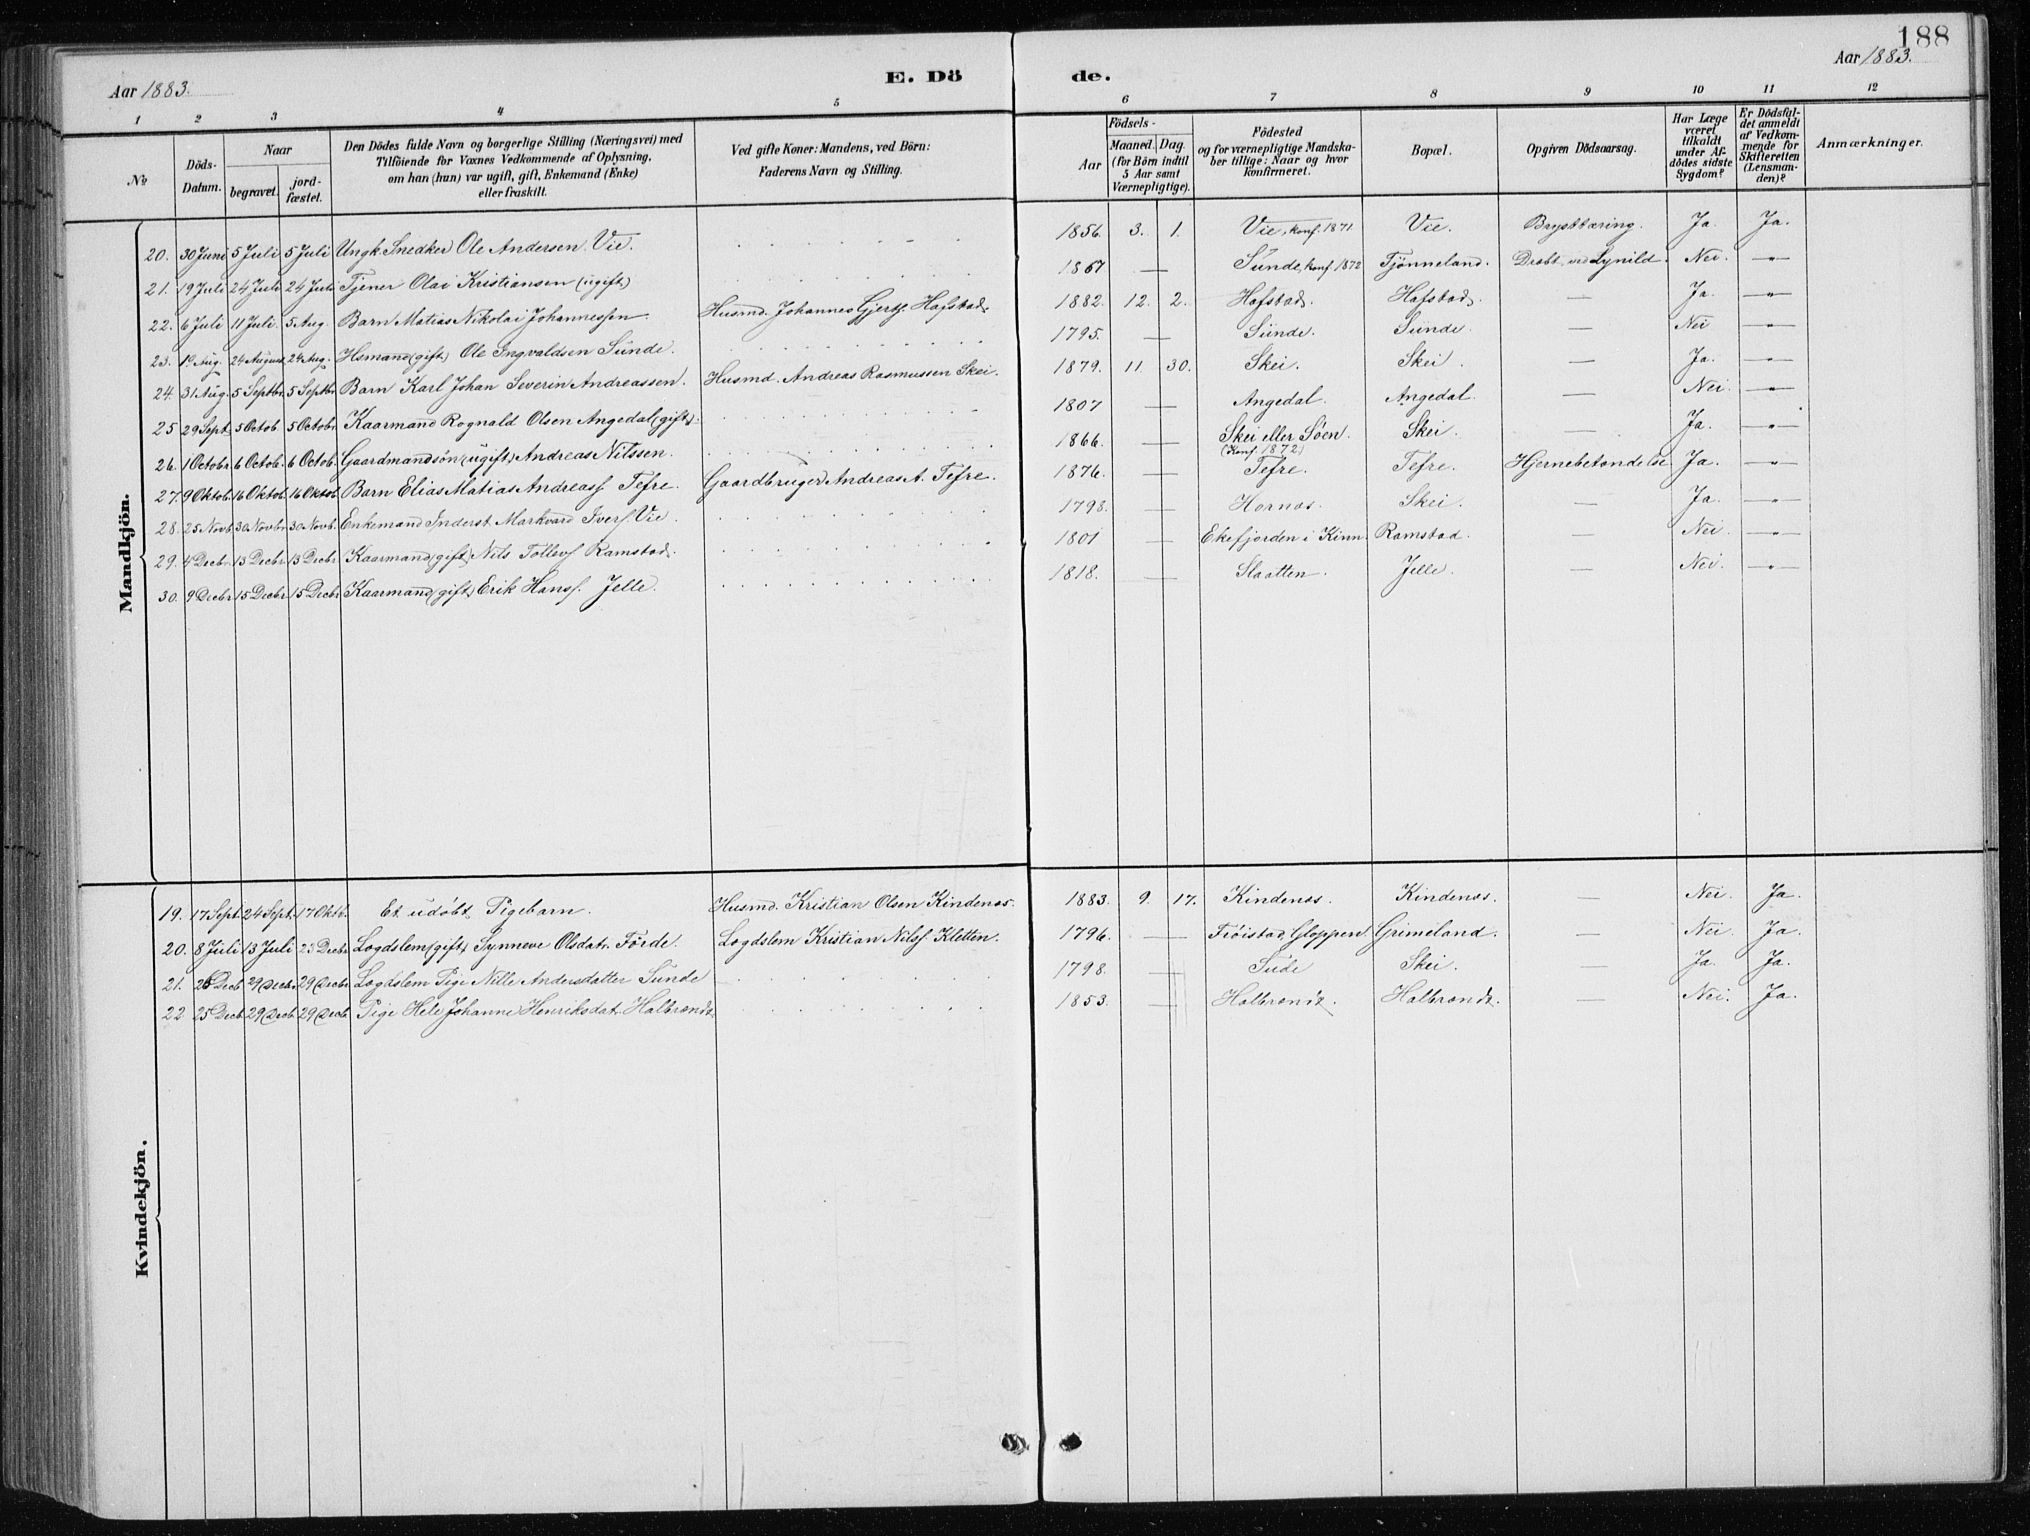 188
Aar 1883.
E. Dö de.
Aar 1883.
1 2 3 4 5 6 7 8 9 10 11 12
№
Döds-Datum.
Naar
begravet.
jordfæstet.
Den Dödes fulde Navn og borgerlige Stilling (Næringsvei) med
Tilföiende for Voxnes Vedkommende af Oplysning,
om han (hun) var ugift, gift, Enkemand (Enke)
eller fraskilt.
Ved gifte Koner: Mandens, ved Börn:
Faderens Navn og Stilling.
Födsels-
Aar
Maaned. Dag.
(for Börn indtil
5 Aar samt
Værnepligtige).
Födested
og for værnepligtige Mandska-
ber tillige: Naar og hvor
konfirmeret.
Bopæl.
Opgiven Dödsaarsag.
Har Læge
været
tilkaldt
under Af-
dödes sidste
Sygdom?
Er Dödsfal-
det anmeldt
af Vedkom-
mende for
Skifteretten
(Lensman-
den)?
Anmærkninger.
Mandkjön.
20. 30 Juni 5 Juli 5 Juli Ungk. Snedker Ole Andersen Vie. 1856. 3. 1. Vie, konf. 1871 Vie. Brysttæring. Ja. Ja.
21. 19 Juli 24 Juli 24 Juli Tjener Olai Kristiansen (ugift) 1867 — Sunde, konf. 1872 Tjönneland. Dræbt ved Lynild. Nei. —"—
22. 6 Juli 11 Juli. 5 Aug. Barn Matias Nikolai Johannessen. Husmd. Johannes Gjertz. Hafstad. 1882. 12. 2. Hafstad. Hafstad. — Ja. —"—
23. Aug. 24 August 24 Aug. Hsmand (gift) Ole Ingvaldsen Sunde. 1795. — Sunde. Sunde. — Nei —"—
24. 31 Aug. 5 Septbr. 5 Septbr. Barn Karl Johan Severin Andreassen. Husmd. Andreas Rasmussen Skei. 1879. 11. 30. Skei. Skei. — Ja. —"—
25 29 Sept. 5 Octob 5 Octobr. Kaarmand Rognald Olsen Angedal (gift). 1807 — Angedal. Angedal. — Nei. —"—
26. 1 Octobr. 6 Octob. 6 Octob. Gaardmandsön (ugift) Andreas Nilssen. 1866. — Skei eller Söen. (Konf. 1872) Skei. — Ja. —"—
27. 9 Oktob. 16 Oktob. 16 Oktob. Barn Elias Matias Andreass Tefre. Gaardbruger Andreas A. Tefre. 1876. — Tefre. Tefre. Hjernebetændelse Ja. —"—
28. 25 Novb. 30 Novbr. 30 Novb. Enkemand Inderst Markvard Ivers. Vie. 1798. — Hornas. Skei. — Ja. —"—
29. 4 Decbr. 13 Decbr 13 Decbr Kaarmand (gift) Nils Tollevs Ramstad. 1801 — Ekefjorden i Kinn Ramstad. — Nei. —"—
30. 9 Decbr 15 Decbr 15 Decbr Kaarmand (gift) Erik Hanss. Jelle. 1818. — Slaatten. Jelle. — Nei. —"—
Kvindekjön.
19. 17 Sept. 24 Sept. 17 Oktb. Et udöbt Pigebarn. Husmd. Kristian Olsen Kindenæs. 1883. 9. 17. Kindenæs. Kindenæs. — Nei. Ja.
20. 8 Juli 13 Juli 23 Decbr Lægdslem (gift) Synneve Olsdat. Förde. Lægdslem Kristian Nilss. Kletten. 1796. — Fröistad, Gloppen Grimeland. — Nei. Ja.
21. 26 Decb 29 Decbr. 29 Decbr Lægdslem Pige Nille Andersdatter Sunde 1798. — Skei. — Ja. Ja.
22 25 Decb. 29 Decb. 29 Decb. Pige Hele Johanne Henriksdat. Halbrendt 1853. — Halbrendt. Halbrendt. — Nei. Ja.